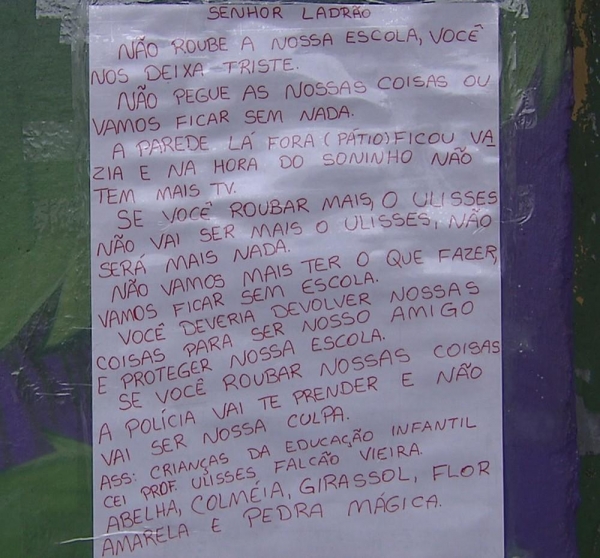 SENHOR LADRÃO
NÃO ROUBE A NOSSA ESCOLA, VOCÊ
NOS DEIXA TRISTE.
NÃO PEGUE AS NOSSAS COISAS OU
VAMOS FICAR SEM NADA.
A PAREDE LÁ FORA (PÁTIO) FICOU VA
ZIA E NA HORA DO SONINHO NÃO
TEM MAIS TV.
SE VOCÊ ROUBAR MAIS, O ULISSES
NÃO VAI SER MAIS O ULISSES, NÃO
SERÁ MAIS NADA.
NÃO VAMOS MAIS TER O QUE FAZER,
VAMOS FICAR SEM ESCOLA.
VOCÊ DEVERIA DEVOLVER NOSSAS
COISAS PARA SER NOSSO AMIGO
E PROTEGER NOSSA ESCOLA.
SE VOCÊ ROUBAR NOSSAS COISAS
A POLÍCIA VAI TE PRENDER E NÃO
VAI SER NOSSA CULPA.
ASS: CRIANÇAS DA EDUCAÇÃO INFANTIL
CEI PROF. ULISSES FALCÃO VIEIRA.
ABELHA, COLMÉIA, GIRASSOL, FLOR
AMARELA E PEDRA MÁGICA.